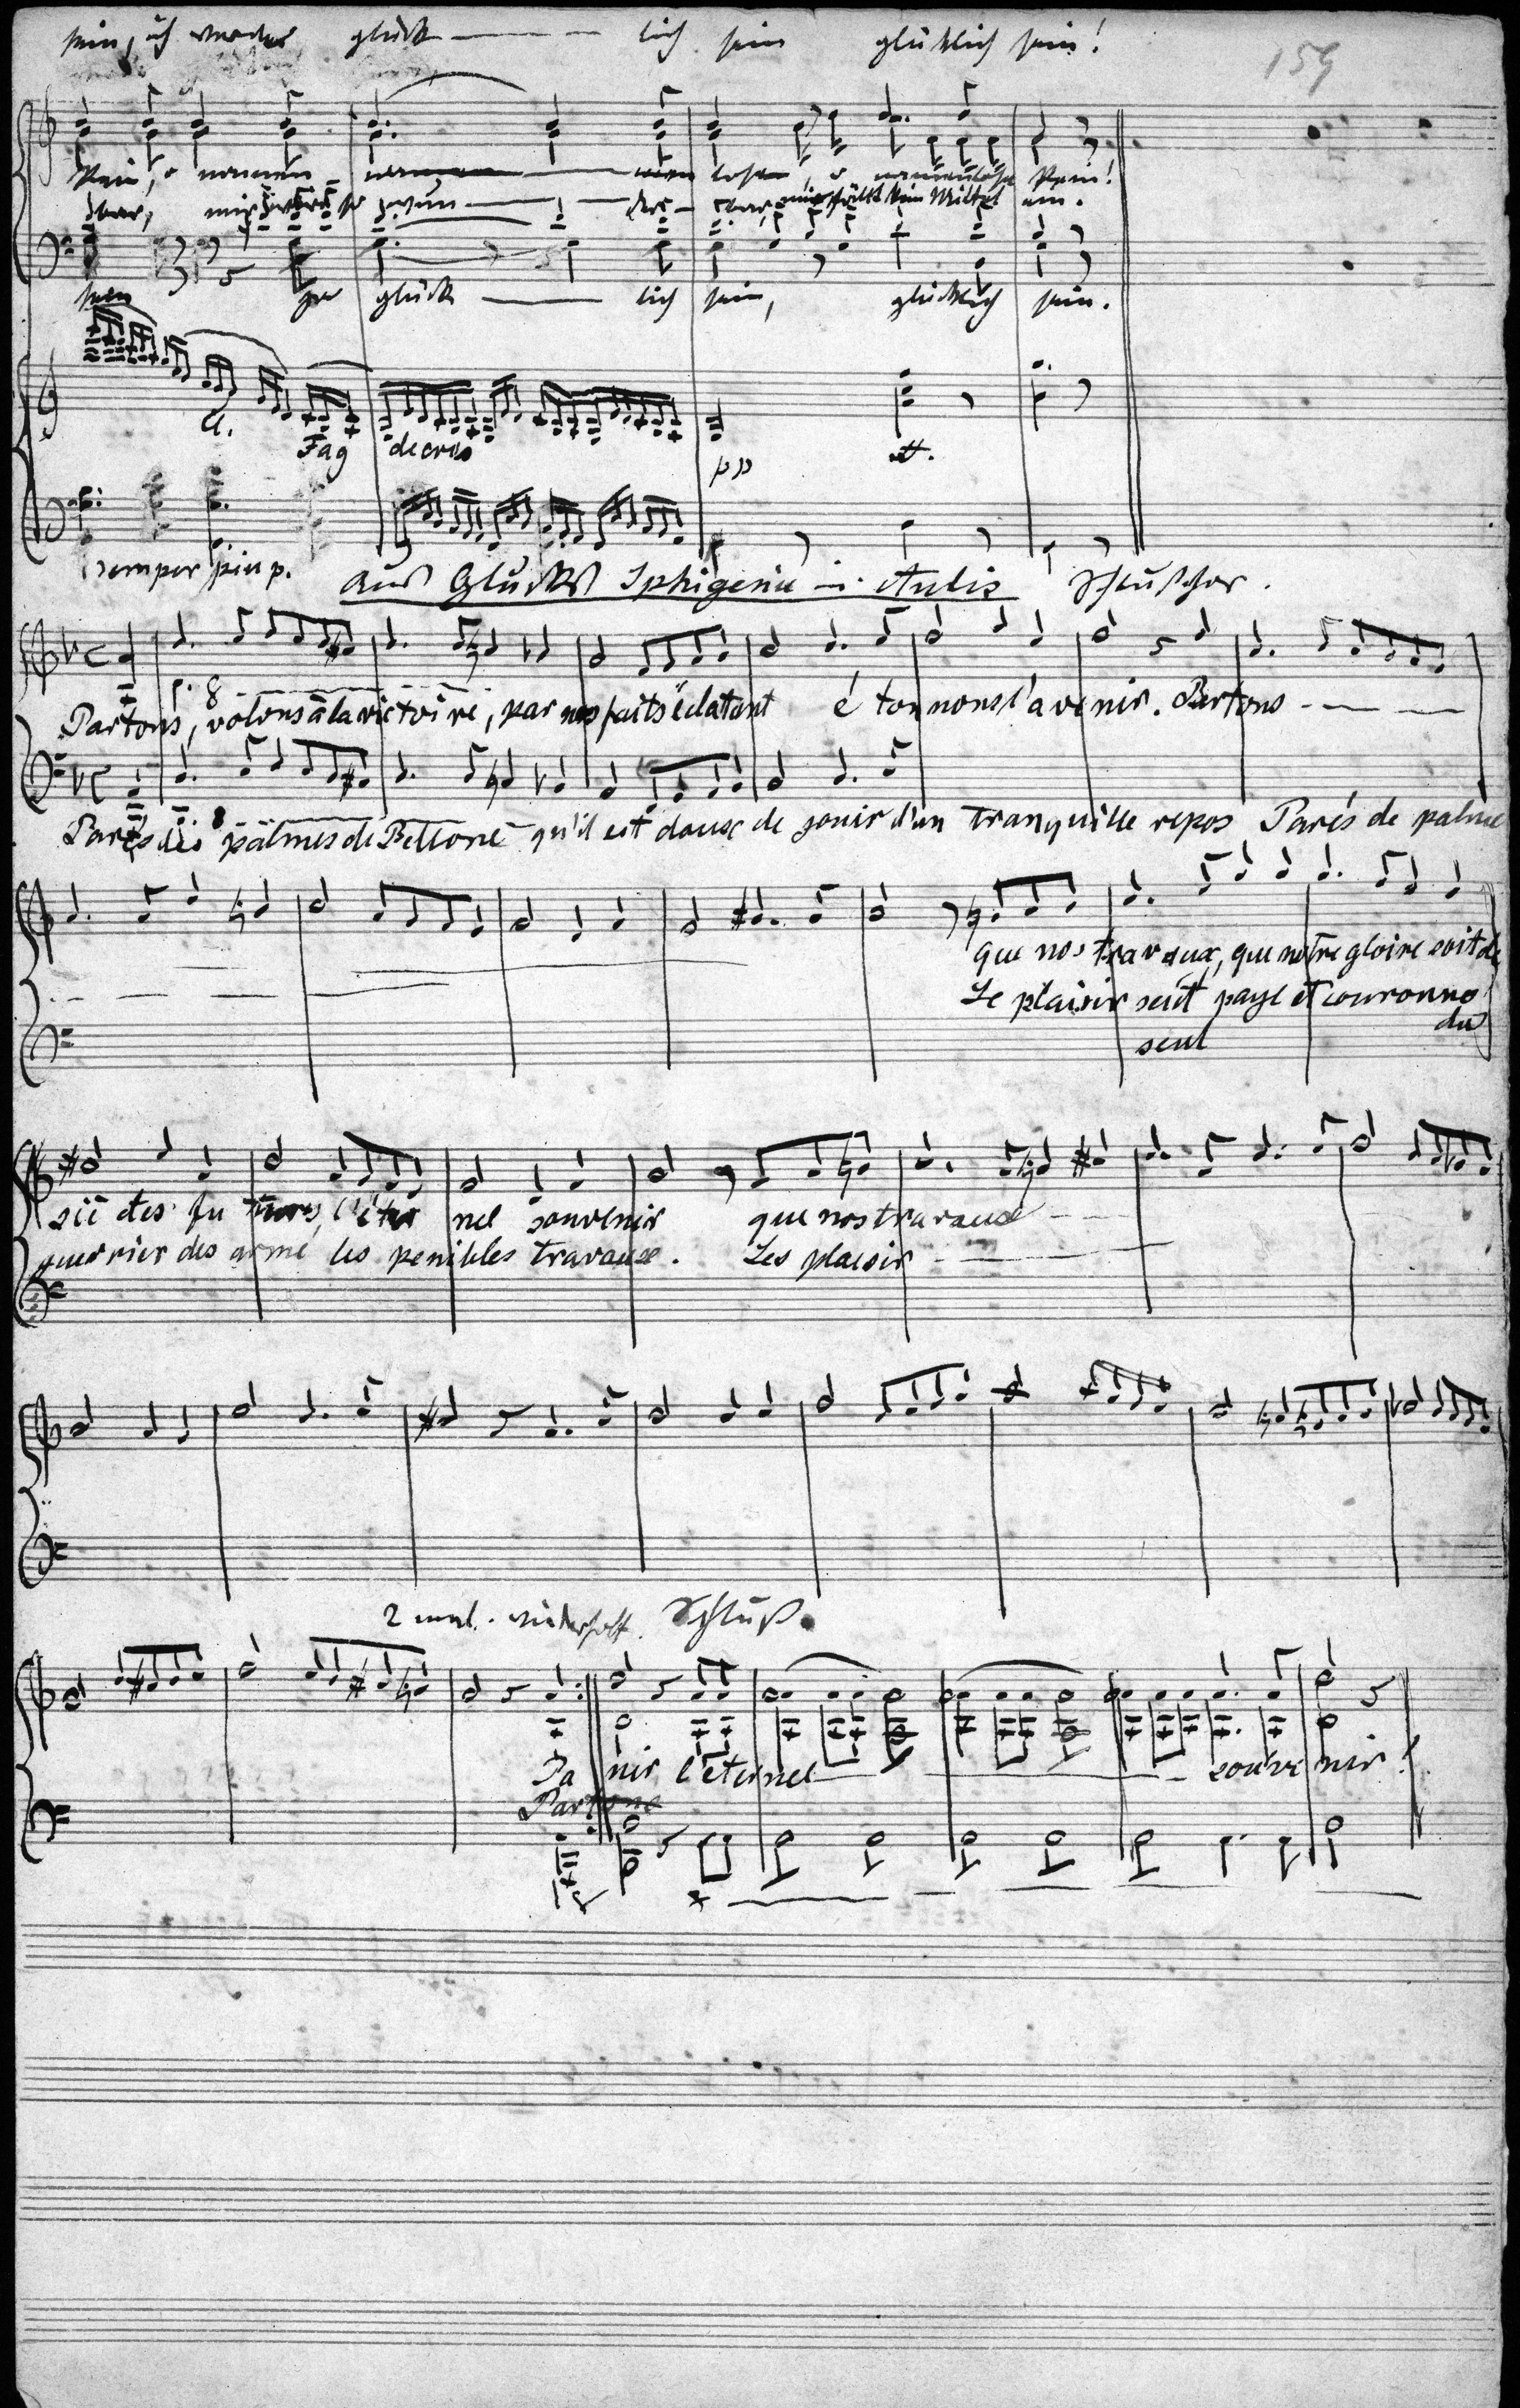 sein, ich werde glück — — — lich sein glücklich sein!
159
Pein, o nammen - namen — — losen, o namenlose Pein!
bar, mir wird so wun — — der - bar, mir fällt kein Mittel ein.
sein glück — lich sein, glücklich sein.
Cl.
Fag decres
pp
semper piu p.
Aus Glucks Iphigenie in Aulis Schlußchor.
p. 8
Partons, volons à la victoire, par nos faits éclatant é tonnons l'avenir. Partons - — — —
8
Parés des palmes de Bellone qu'il est doux de jouir d'un tranquille repos Parés de palme
que nos travaux, que notre gloire soit de
Le plaisir seul paye et couronne
seul du
sié des fu turs, l'éter nel souvenir que nos travaux - —
guerrier des armé les penibles travaux. Les plaisir - — —
2 mal. wiederholt. Schluß.
Pa nir l'éternel — — — souve nir!
Partons